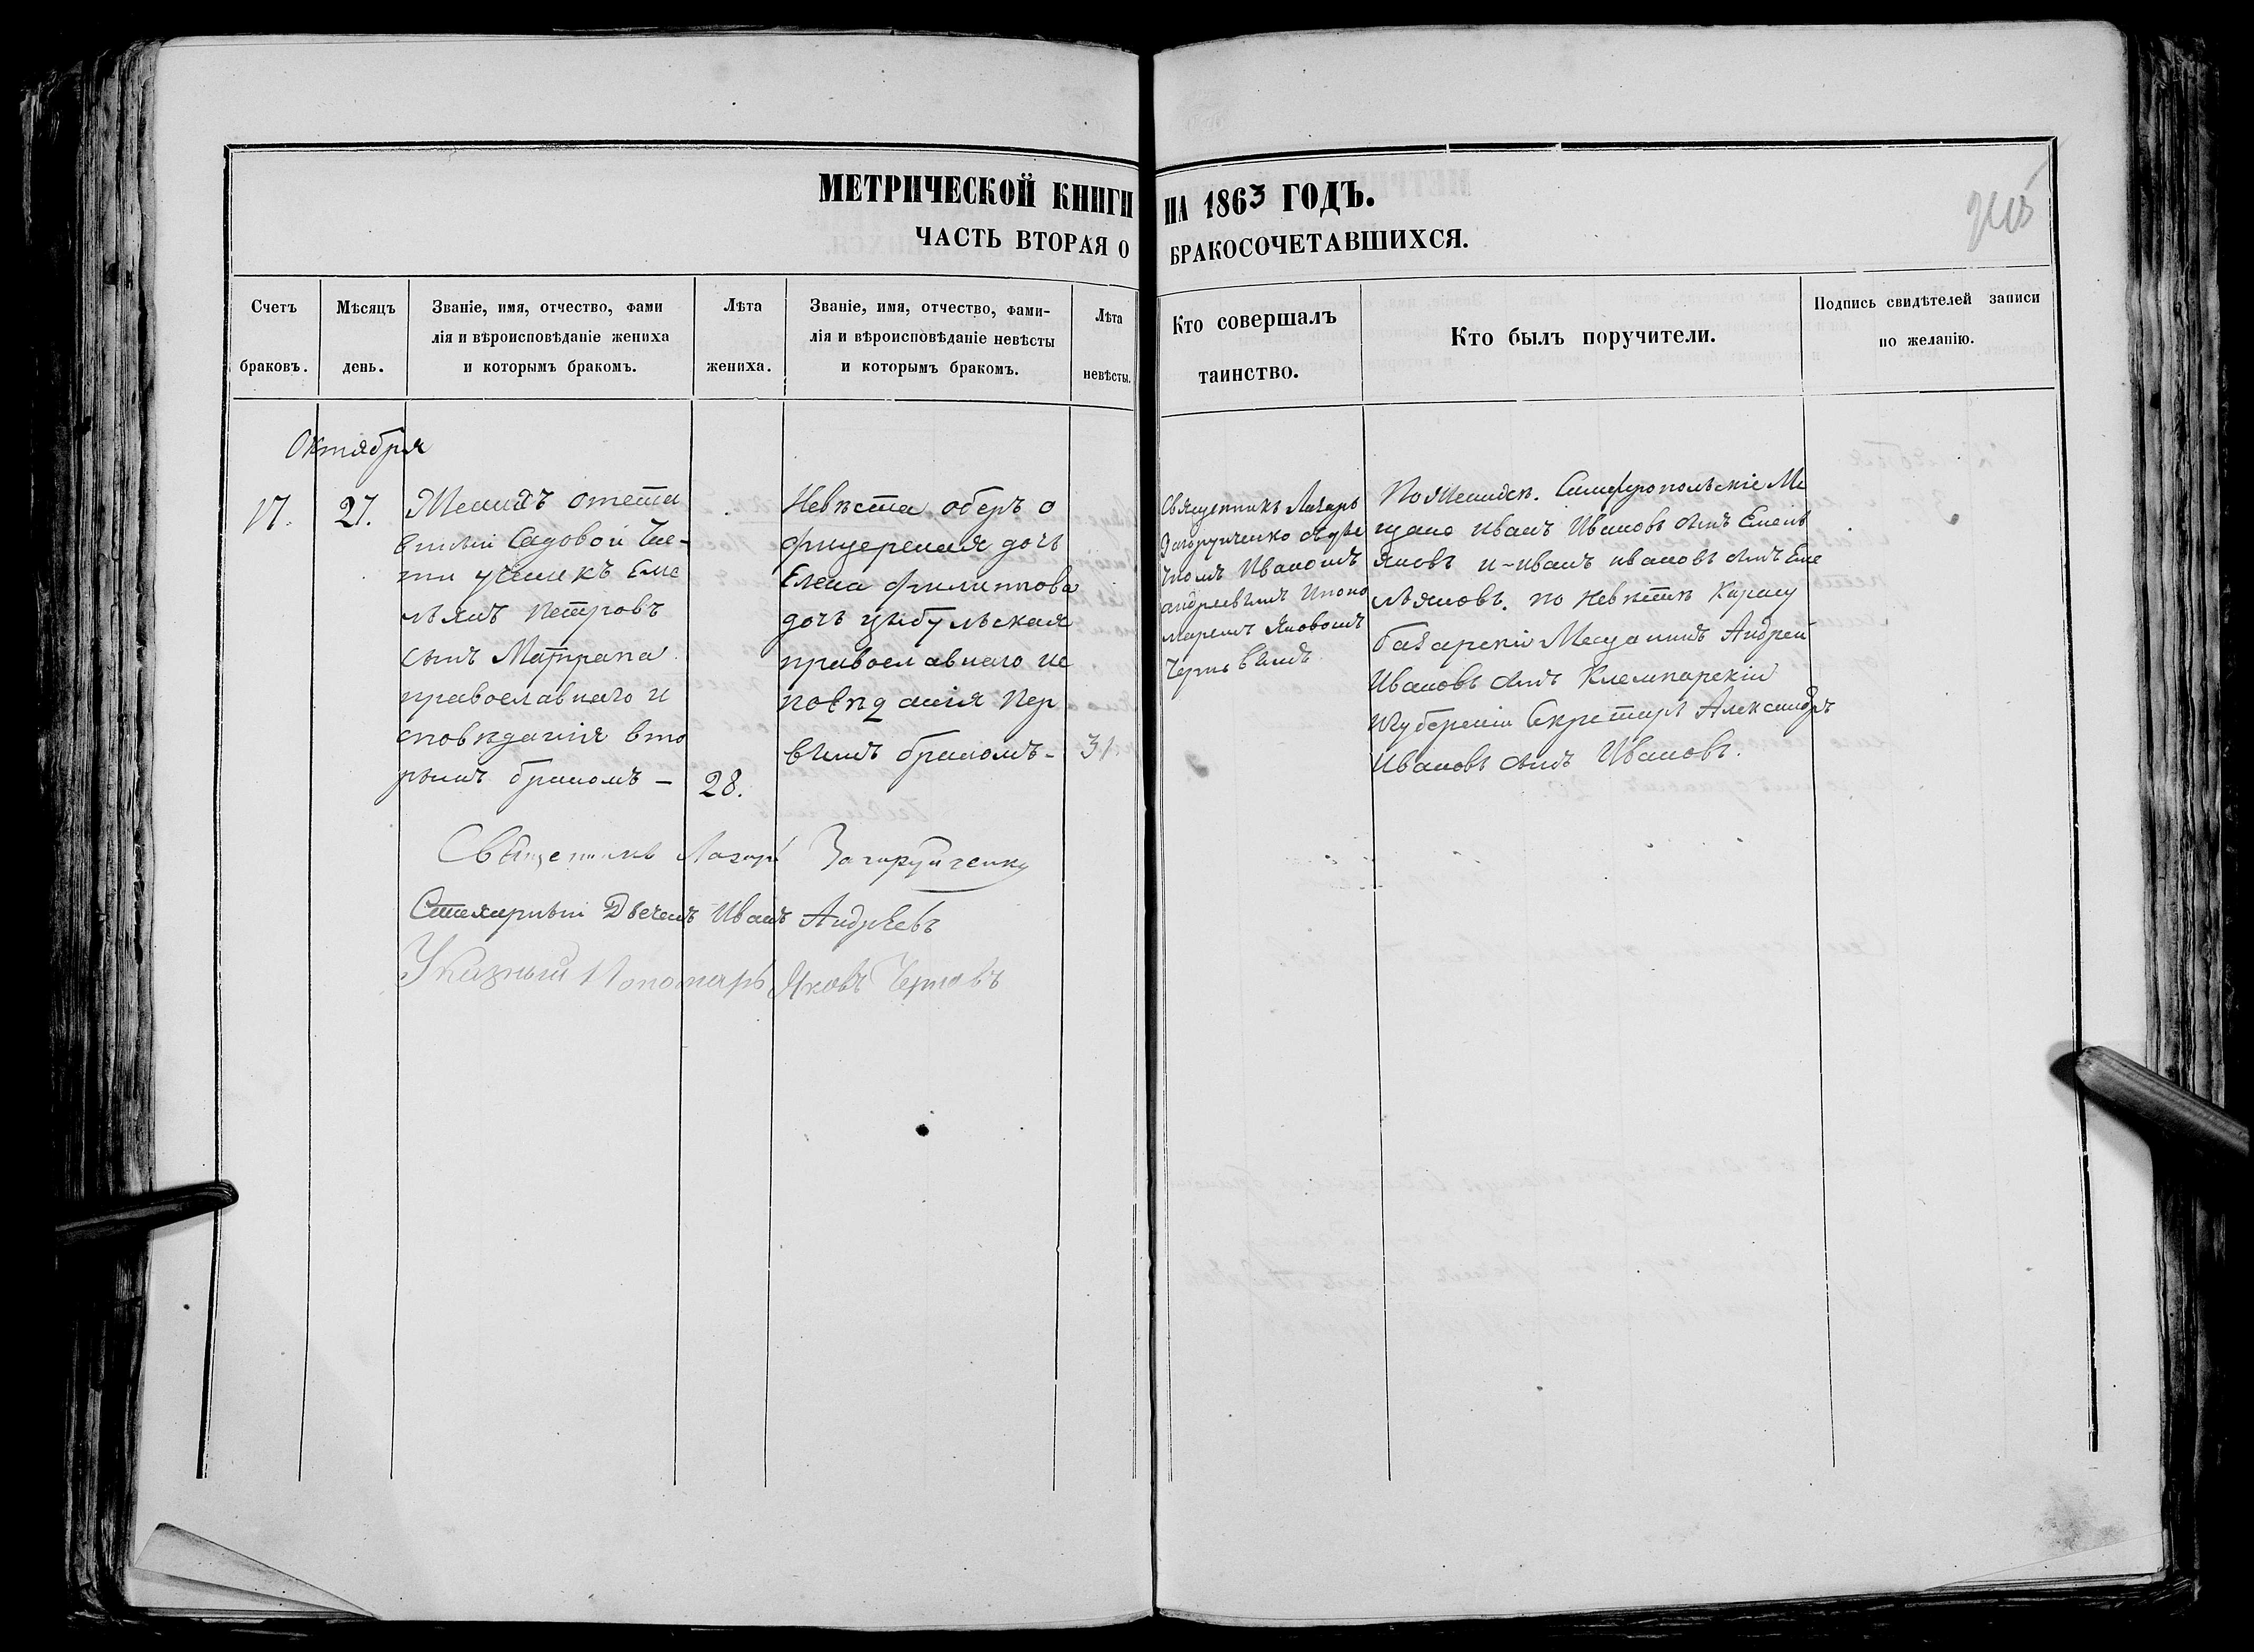 МЕТРИЧЕСКОЙ КНИГИ НА 1863 ГОДЪ.
ЧАСТЬ ВТОРАЯ О БРАКОСОЧЕТАВШИХСЯ.
Счетъ
браковъ.
Мѣсяцъ
день.
Званіе, имя, отчество, фами
лія и вѣроисповѣданіе жениха
и которымъ бракомъ.
Лѣта
жениха.
Званіе, имя, отчество, фами-
лія и вѣроисповѣданіе невѣсты
и которымъ бракомъ.
Лѣта
невѣсты.
Кто совершалъ
таинство.
Кто былъ поручители.
Подпись свидѣтелей записи
по желанію.
Октября
17.
27.
Женихъ отста
вный Садовой
ученикъ Еме
льянъ Петровъ
сынъ
православнаго и
сповѣданія вто
рымъ бракомъ —
28.
Невѣста оберъ о
фицерская дочь
Елена Филиппова
дочь Цыбульская
православнаго ис
повѣданія пер
вымъ бракомъ-
31.
Священникъ Лазарь
Загоруйченко съ дья
чкомъ Иваномъ
Андреевымъ и поно
маремъ Яковомъ
Черновымъ
По женихѣ. Симферопольскіе Ме
щане Иванъ Ивановъ сынъ Емель
яновъ и Иванъ Ивановъ сынъ Еме
льяновъ. по невѣстѣ Карасу
базарскій Мещанинъ Андрей
Ивановъ сынъ
и Губернскій Секретарь Александръ
Ивановъ сынъ Ивановъ.
Священникъ Лазарь Загоруйченко
Стихарный Дьячекъ Иванъ Андреевъ
Указный Пономарь Яковъ Черновъ